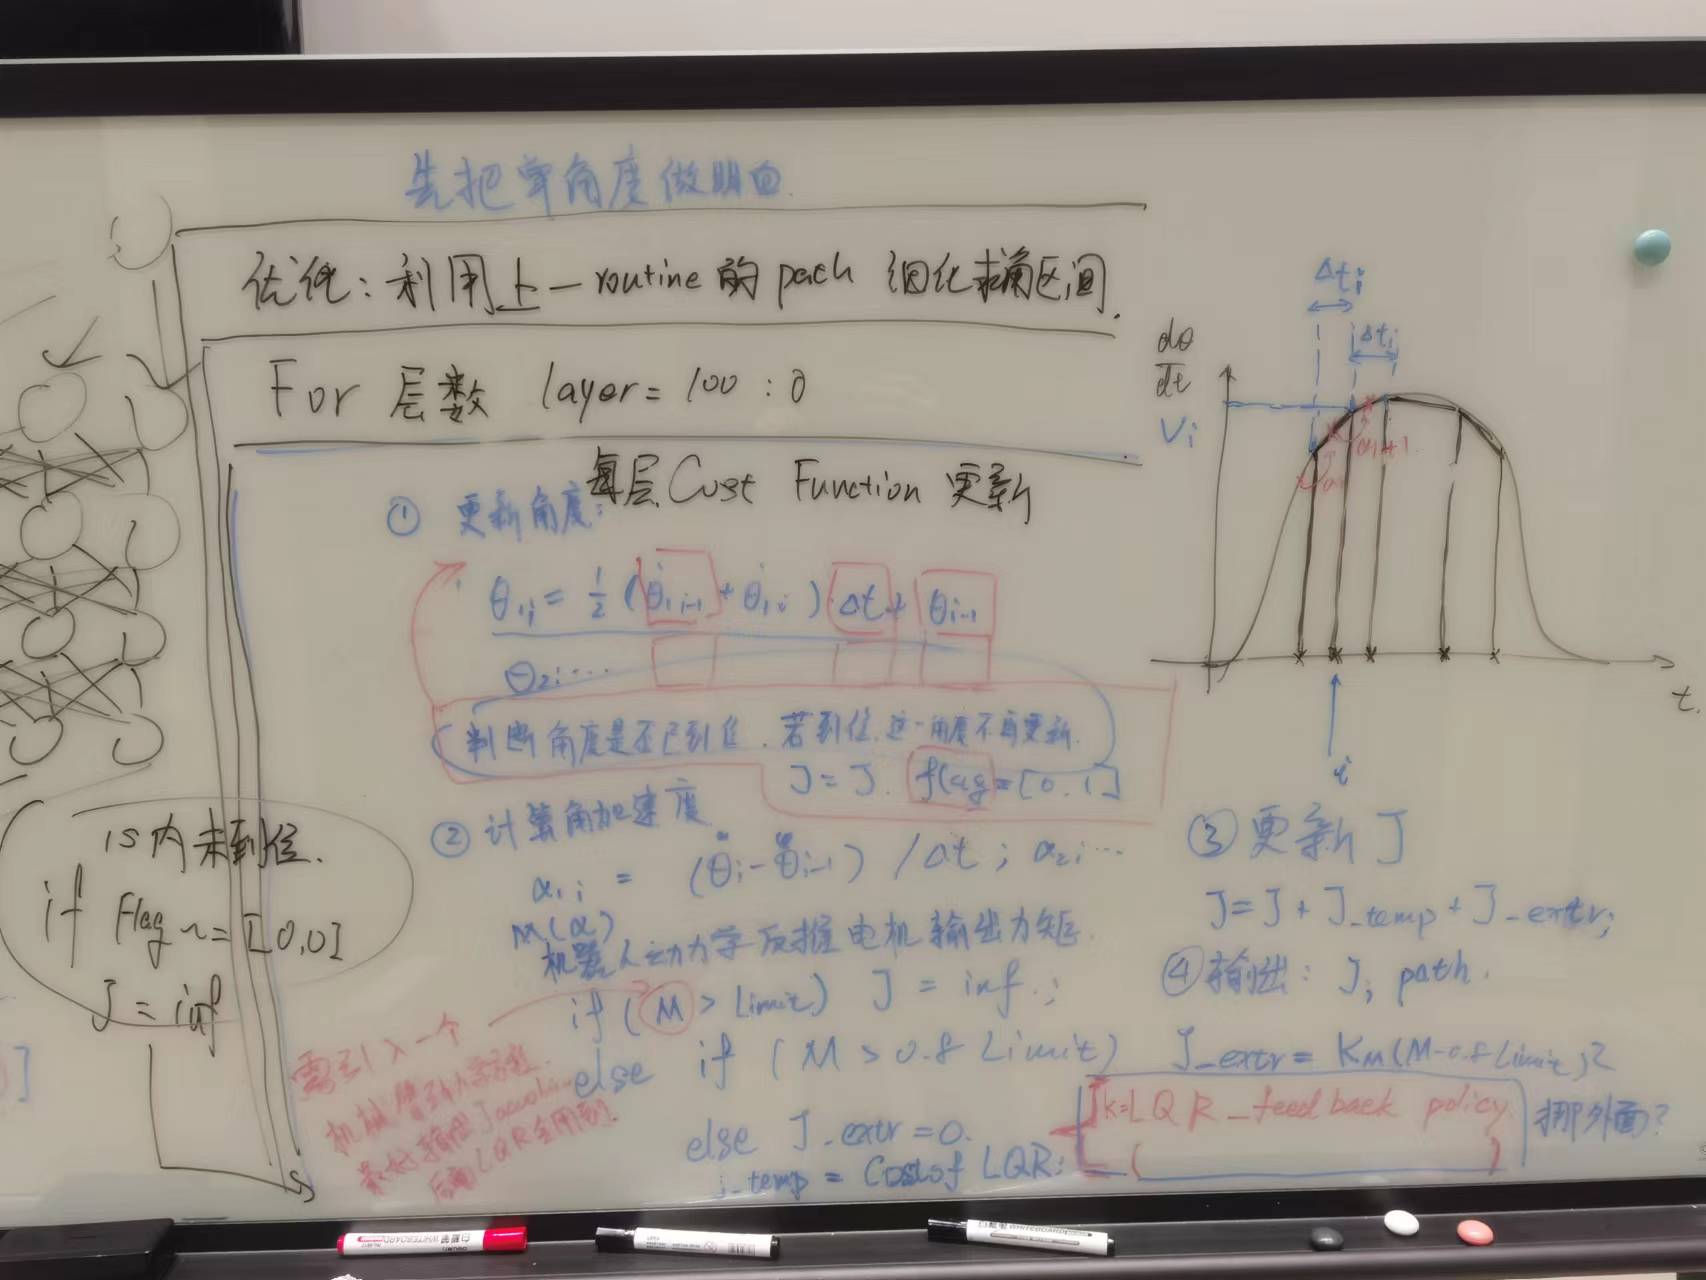 先把单角度做明白
优化：利用上一routine的path 细化求解区间.
For 层数 layer= 100 : 0
每层Cost Function 更新
① 更新角度:
θ₁ᵢ = 1/2 (θ̇₁ᵢ₋₁ + θ̇₁ᵢ)·Δt + θᵢ₋₁
θ₂ᵢ ...
判断角度是否已到位. 若到位, 这一角度不再更新.
J = J. flag=[0.1]
② 计算角加速度
α₁ᵢ = (θ̈ᵢ-θ̈ᵢ₋₁) /Δt; α₂ᵢ...
M(α)
机器人动力学反推电机输出力矩.
if (M > Limit) J = inf.;
else if (M > 0.8 Limit) J_extr = Kм(M-0.8Limit)²
else J_extr = 0.
J_temp = Cost of LQR;
k=LQR_feed back policy.
( )
挪外面?
③ 更新 J
J=J+J_temp+J_extr;
④ 输出: J; path.
需引入一个
机械臂动力学方程.
最好输出Jacobian
后面LQR会用到.
1s内未到位.
if Flag ~= [0,0]
J = inf
dθ
dt
Vᵢ
Δtᵢ
Δtᵢ
αᵢ
αᵢ₊₁
t.
i
]